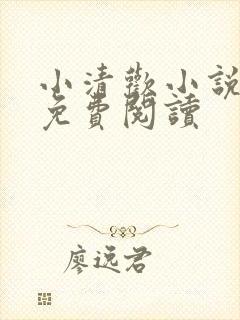 小清歡小說
免費閱讀
廖远君